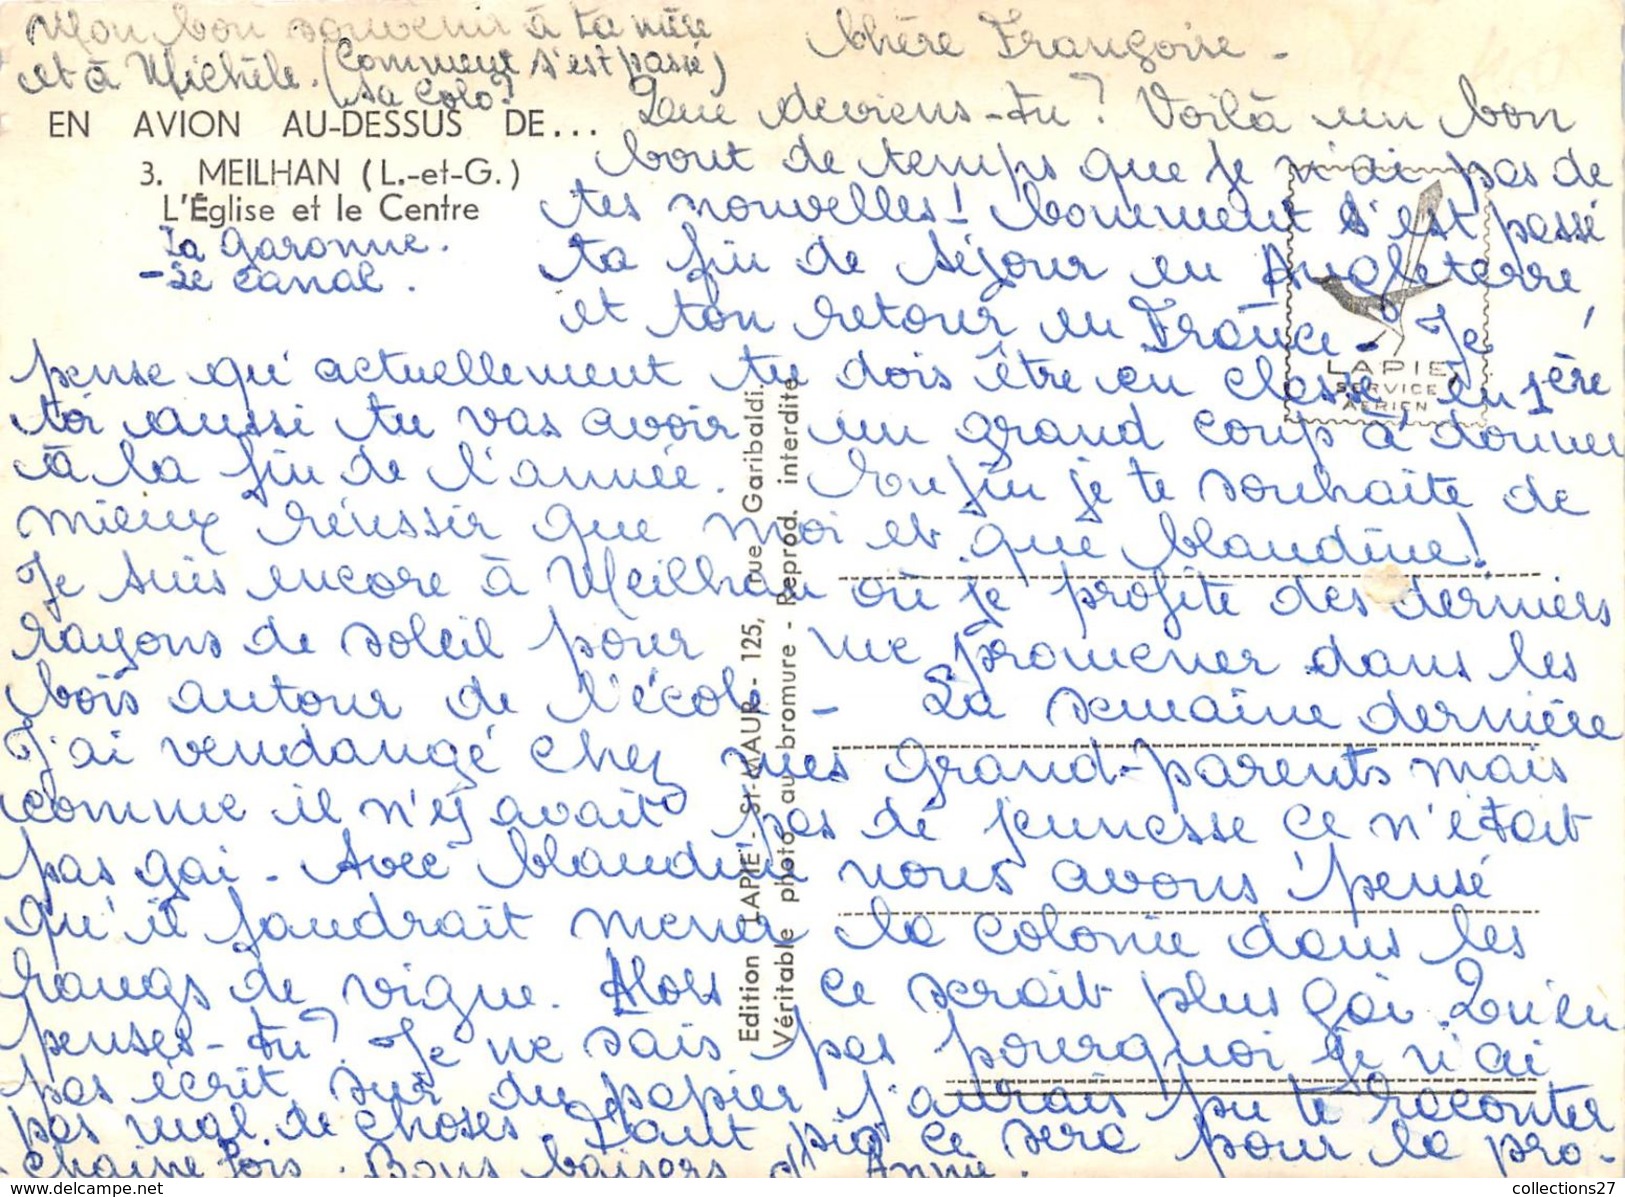 Mon bon souvenir à ta mère
et à Michèle. (Comment s'est passé
sa colo?)
EN AVION AU-DESSUS DE...
3. MEILHAN (L.-et-G.)
L'Église et le Centre
La Garonne.
- Le canal.
Chère Françoise -
Que deviens-tu? Voilà un bon
bout de temps que je n'ai pas de
tes nouvelles! Comment s'est passé
ta fin de séjour en Angleterre,
et ton retour en France - Je
pense qu'actuellement tu dois être en classe, en 1ère
toi aussi tu vas avoir un grand coup à donner
à la fin de l'année. Enfin je te souhaite de
mieux réussir que moi et que Claudine!
Je suis encore à Meilhan où je profite des derniers
rayons de soleil pour me promener dans les
bois autour de l'école - La semaine dernière
J'ai vendangé chez mes grand-parents mais
comme il n'y avait pas de jeunesse ce n'était
pas gai - Avec Claudine nous avons pensé
qu'il faudrait mener la colonie dans les
rangs de vigne. Alors ce serait plus gai. Qu'en
penses-tu? Je ne sais pas pourquoi je n'ai
pas écrit sur du papier j'aurais pu te raconter
pas mal de choses. Tant pis ce sera pour la pro-
chaine fois. Bons baisers d'Annie.
LAPIE
SERVICE
AÉRIEN
Edition LAPIE - St-MAUR - 125, rue Garibaldi.
Véritable photo au bromure - Reprod. interdite
www.delcampe.net
collections27